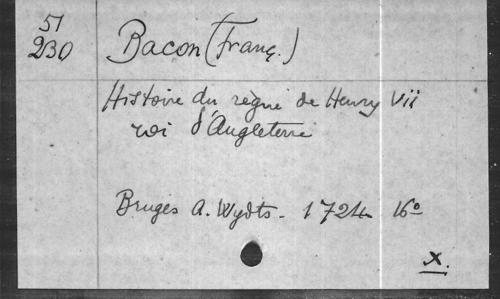 51
230
Bacon (Franç.)
Histoire du règne de Henry VII
roi d'Angleterre
Bruges A. Wydts - 1724 16°
X.